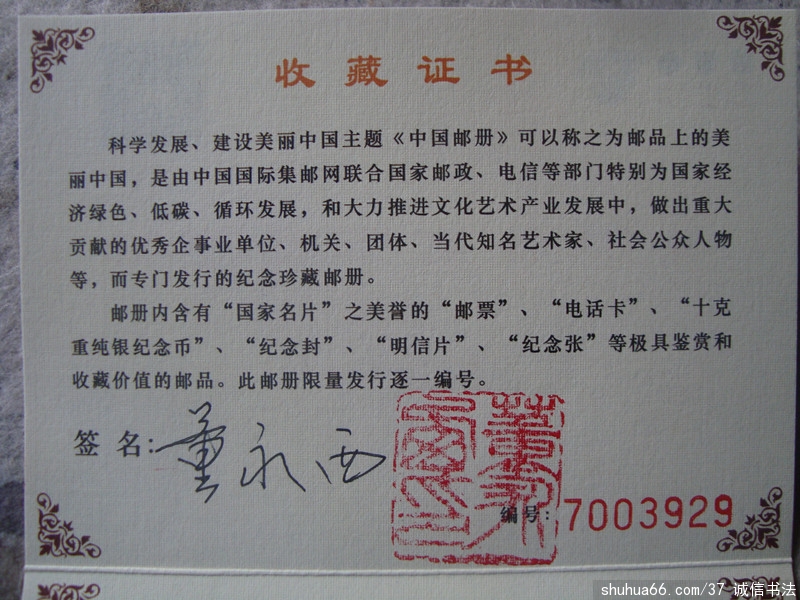 收藏证书
科学发展、建设美丽中国主题《中国邮册》可以称之为邮品上的美
丽中国，是由中国国际集邮网联合国家邮政、电信等部门特别为国家经
济绿色、低碳、循环发展，和大力推进文化艺术产业发展中，做出重大
贡献的优秀企事业单位、机关、团体、当代知名艺术家、社会公众人物
等，而专门发行的纪念珍藏邮册。
邮册内含有“国家名片”之美誉的“邮票”、“电话卡”、“十克
重纯银纪念币”、“纪念封”、“明信片”、“纪念张”等极具鉴赏和
收藏价值的邮品。此邮册限量发行逐一编号。
签名：董永西
董永西印
编号：7003929
shuhua66.com/37 诚信书法